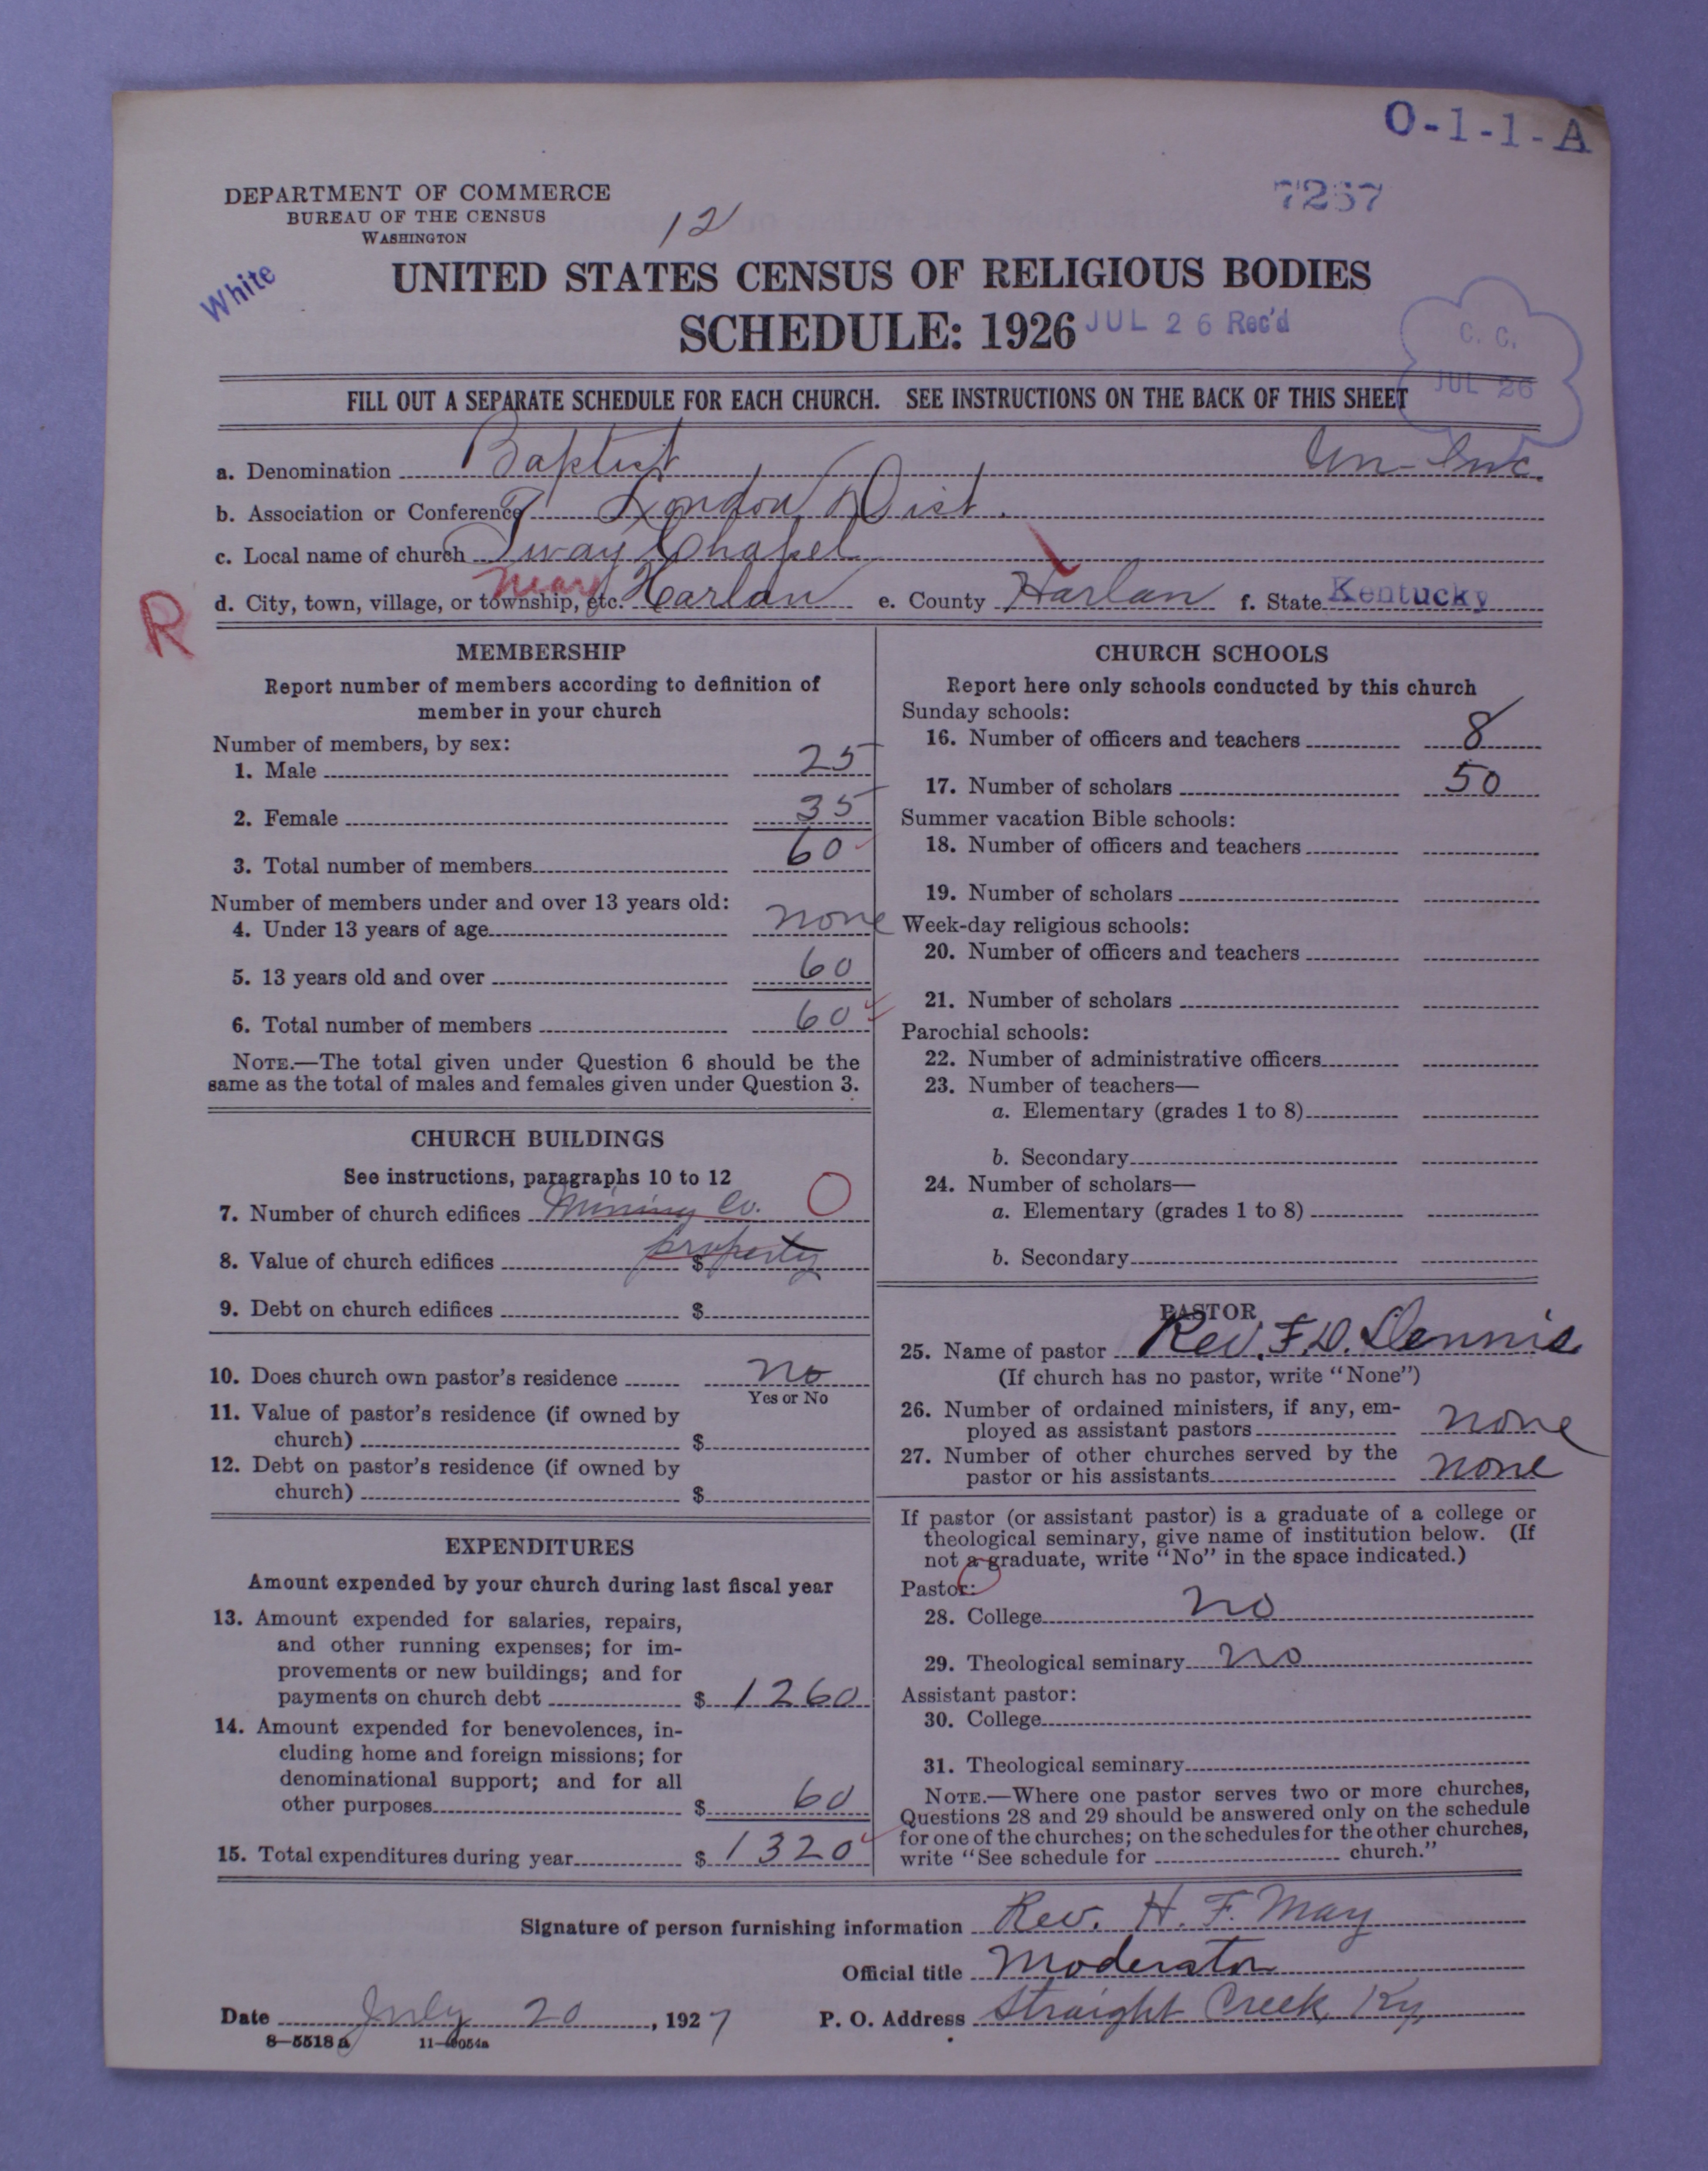 O-1-1-A
7267
DEPARTMENT OF COMMERCE
BUREAU OF THE CENSUS
WASHINGTON
12
White
UNITED STATES CENSUS OF RELIGIOUS BODIES
SCHEDULE: 1926 JUL 26 Rec'd
C. C.
JUL 26
FILL OUT A SEPARATE SCHEDULE FOR EACH CHURCH. SEE INSTRUCTIONS ON THE BACK OF THIS SHEET
a. Denomination Baptist Un-Inc.
b. Association or Conference London Dist.
c. Local name of church Tway Chapel
d. City, town, village, or township, etc. near Harlan e. County Harlan f. State Kentucky
R
MEMBERSHIP
Report number of members according to definition of
member in your church
Number of members, by sex:
1. Male 25
2. Female 35
3. Total number of members 60
Number of members under and over 13 years old:
4. Under 13 years of age none
5. 13 years old and over 60
6. Total number of members 60
NOTE.—The total given under Question 6 should be the
same as the total of males and females given under Question 3.
CHURCH BUILDINGS
See instructions, paragraphs 10 to 12
7. Number of church edifices Mining Co. 0
8. Value of church edifices $ property
9. Debt on church edifices $
10. Does church own pastor's residence no
Yes or No
11. Value of pastor's residence (if owned by
church) $
12. Debt on pastor's residence (if owned by
church) $
EXPENDITURES
Amount expended by your church during last fiscal year
13. Amount expended for salaries, repairs,
and other running expenses; for im-
provements or new buildings; and for
payments on church debt $ 1260
14. Amount expended for benevolences, in-
cluding home and foreign missions; for
denominational support; and for all
other purposes $ 60
15. Total expenditures during year $ 1320
CHURCH SCHOOLS
Report here only schools conducted by this church
Sunday schools:
16. Number of officers and teachers 8
17. Number of scholars 50
Summer vacation Bible schools:
18. Number of officers and teachers
19. Number of scholars
Week-day religious schools:
20. Number of officers and teachers
21. Number of scholars
Parochial schools:
22. Number of administrative officers
23. Number of teachers—
a. Elementary (grades 1 to 8)
b. Secondary
24. Number of scholars—
a. Elementary (grades 1 to 8)
b. Secondary
PASTOR
25. Name of pastor Rev. F. D. Dennis
(If church has no pastor, write "None")
26. Number of ordained ministers, if any, em-
ployed as assistant pastors none
27. Number of other churches served by the
pastor or his assistants none
If pastor (or assistant pastor) is a graduate of a college or
theological seminary, give name of institution below. (If
not a graduate, write "No" in the space indicated.)
Pastor:
28. College no
29. Theological seminary no
Assistant pastor:
30. College
31. Theological seminary
NOTE.—Where one pastor serves two or more churches,
Questions 28 and 29 should be answered only on the schedule
for one of the churches; on the schedules for the other churches,
write "See schedule for church."
Signature of person furnishing information Rev. H. F. May
Official title Moderator
Date July 20, 1927 P. O. Address Straight Creek, Ky.
8—5518 a